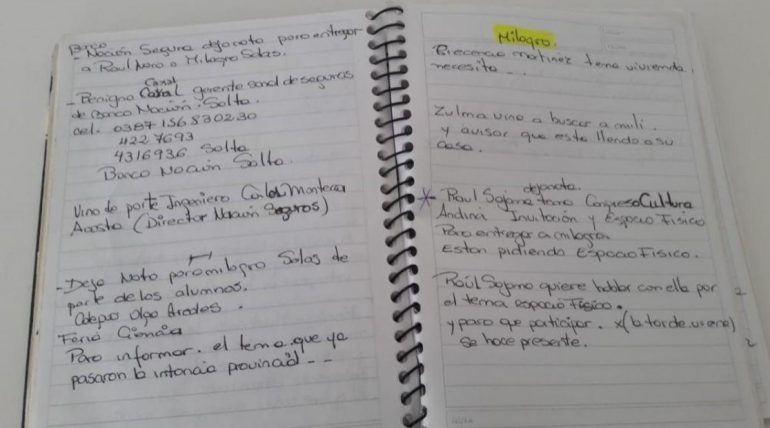 Banco
- Nación Segura dejo nota para entregar
a Raul Noro o Milagro Salas.
Caral
- Benigno Caral gerente sand de seguros
de Banco Nación. Salta.
cel. 0387 156830230
4227693
4316936 Salta
Banco Nación Salta.
Vino de parte Ingeniero Carlos Monterca
Acosta (Director Nación Seguros)
- Dejo Nota para milagro Salas de
parte de los alumnos.
Colegio Olga Aredes.
Feria Ciencia
Para informar. el tema que ya
pasaron la intancia provincial - -
Milagro.
martinez tema vivienda
necesita - - .
Zulma vino a buscar a mili.
y avisor que esta llendo a su
casa.
dejo nota.
* Raul Sajama tema Congreso Cultura
Andina Invitación y Espacio Fisico
Para entregar a milagro.
Estan pidiendo Espacio Fisico.
Raúl Sajama quiere hablar con ella por
el tema espacio Fisico.
y para que participar. x (la tarde viene)
se hace presente.
2
2